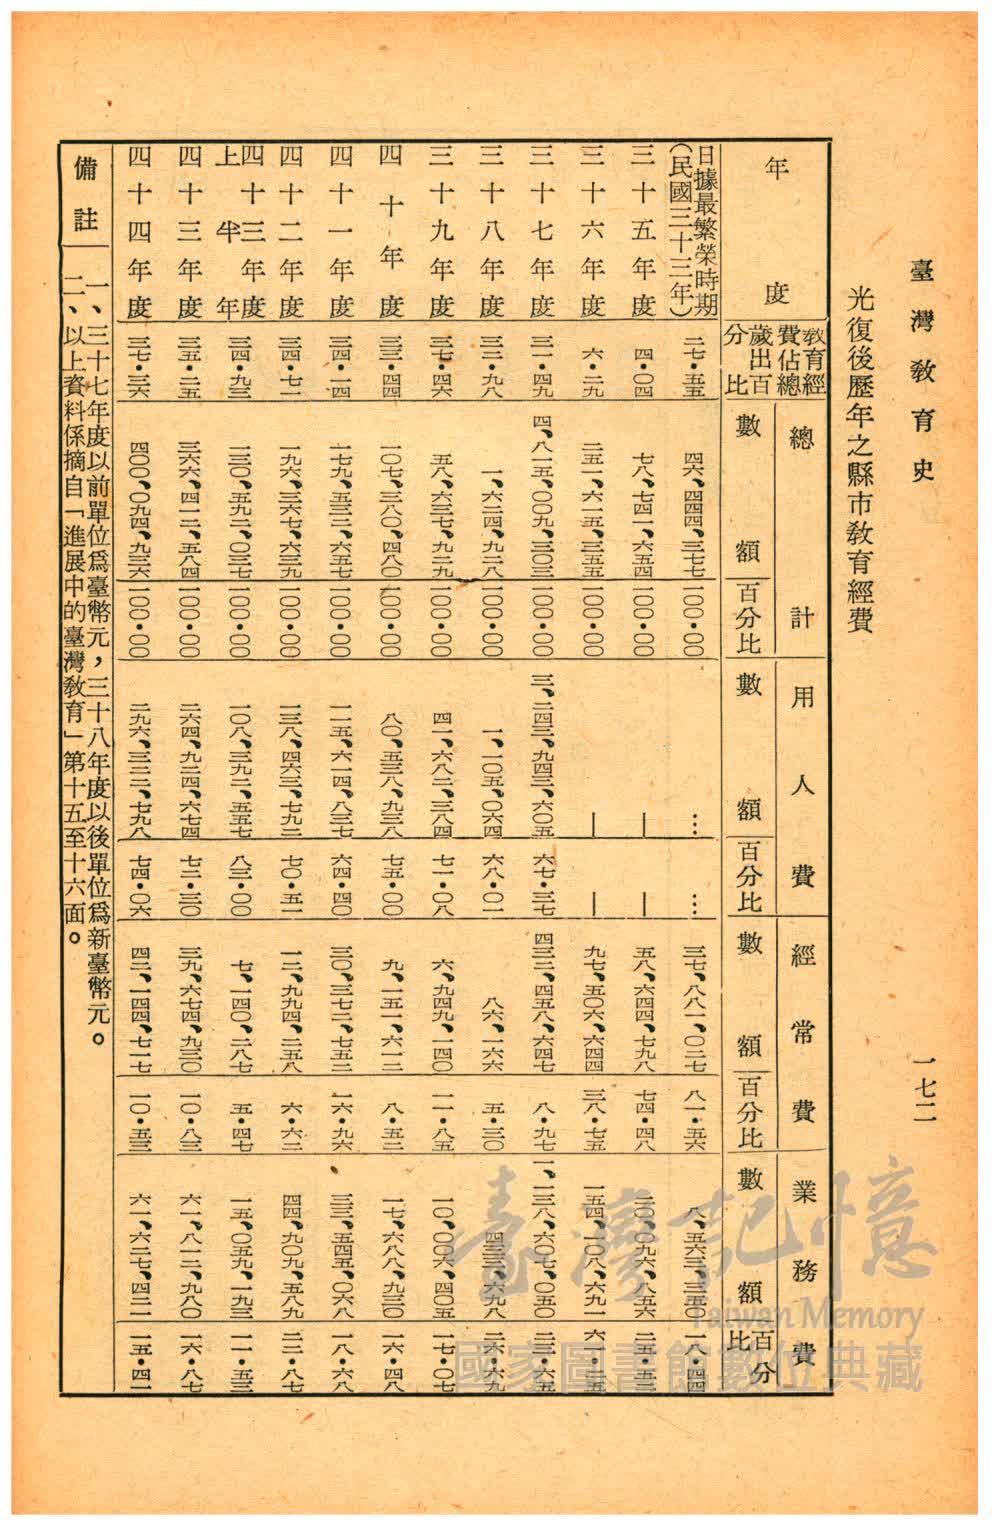 臺灣教育史
一七二
光復後歷年之縣市教育經費
年度 教育經費佔總歲出百分比 總計 數額 百分比 用人費 數額 百分比 經常費 數額 百分比 業務費 數額 百分比
日據最繁榮時期(民國三十三年) 二七・五五 四六、四四四、三七七 一〇〇・〇〇 … … 三七、八八一、〇二七 八一・五六 八、五六三、三五〇 一八・四四
三十五年度 四・〇四 七八、七四一、六五四 一〇〇・〇〇 — — 五八、六四四、七九八 七四・四八 二〇、〇九六、八五六 二五・五二
三十六年度 六・二九 二五一、六一五、三五五 一〇〇・〇〇 — — 九七、五〇六、六四四 三八・七五 一五四、一〇八、六九一 六一・二五
三十七年度 三一・四九 四、八一五、〇〇九、三〇三 一〇〇・〇〇 三、二四三、九四三、六〇五 六七・三七 四三二、四五八、六四七 八・九七 一、一三八、六〇七、〇五〇 二三・六五
三十八年度 三二・九八 一、六二四、九二八 一〇〇・〇〇 一、一〇五、〇六四 六八・〇一 八六、一六六 五・三〇 四三三、六九八 二六・六九
三十九年度 三七・四六 五八、六三七、九二九 一〇〇・〇〇 四一、六八二、三八四 七一・〇八 六、九四九、一四〇 一一・八五 一〇、〇〇六、四〇五 一七・〇七
四十年度 三三・四四 一〇七、三八〇、四八〇 一〇〇・〇〇 八〇、五三八、九三八 七五・〇〇 九、一五一、六一二 八・五二 一七、六八九、九三〇 一六・四八
四十一年度 三四・一四 一七九、五三二、六五七 一〇〇・〇〇 一一五、六一四、八三七 六四・四〇 三〇、三七二、七五二 一六・九六 三三、五四五、〇六八 一八・六八
四十二年度 三四・七一 一九六、三六七、六三九 一〇〇・〇〇 一三八、四六三、七九二 七〇・五一 一二、九九四、二五八 六・六二 四四、九〇九、五八九 二二・八七
四十三年度上半年 三四・九三 一三〇、五九二、〇三七 一〇〇・〇〇 一〇八、三九二、五五七 八三・〇〇 七、一四〇、二八七 五・四七 一五、〇五九、一九三 一一・五三
四十三年度 三五・二五 三六六、四一二、五八四 一〇〇・〇〇 二六四、九二四、六七四 七二・三〇 三九、六七四、九三〇 一〇・八三 六一、八一二、九八〇 一六・八七
四十四年度 三七・三六 四〇〇、〇九四、九三六 一〇〇・〇〇 二九六、三二二、七九八 七四・〇六 四二、一四四、七一七 一〇・五三 六一、六二七、四二一 一五・四一
備註
一、三十七年度以前單位爲臺幣元，三十八年度以後單位爲新臺幣元。
二、以上資料係摘自「進展中的臺灣教育」第十五至十六面。
臺灣記憶
Taiwan Memory
國家圖書館數位典藏